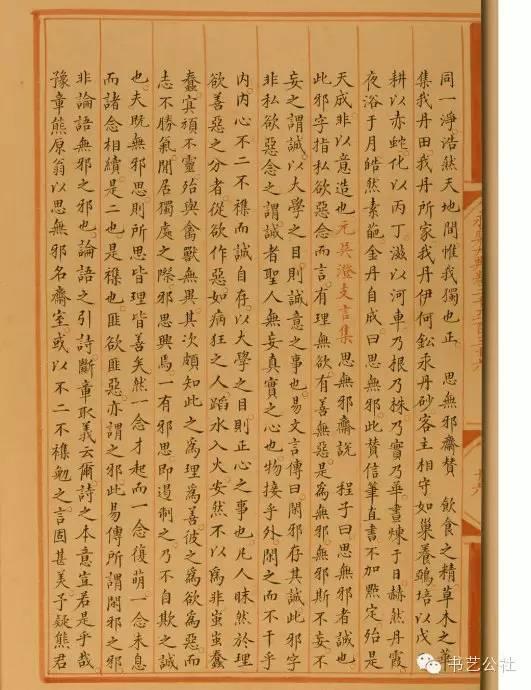 同一淨浩然天地間惟我獨也正　思無邪齋贊　飲食之精草木之華
集我丹田我丹所家我丹伊何鉛汞丹砂客主相守如巢養鵶培以戊己
耕以赤蛇化以丙丁滋以河車乃根乃株乃實乃華晝煉于日赫然丹霞
夜浴于月皓然素葩金丹自成曰思無邪此贊信筆直書不加㸃定殆是
天成非以意造也元吳澄支言集思無邪齋說　程子曰思無邪者誠也
此邪字指私欲惡念而言有理無欲有善無惡是爲無邪無邪斯不妄不
妄之謂誠以大學之目則誠意之事也易文言傳曰閑邪存其誠此邪字
非私欲惡念之謂誠者聖人無妄真實之心也物接乎外閑之而不干乎
内内心不二不襍而誠自存以大學之目則正心之事也凡人昧然於理
欲善惡之分者從欲作惡如病狂之人蹈水入火安然不以爲非蚩蚩蠢
蠢㝠頑不靈殆與禽獸無異其次頗知此之爲理爲善彼之爲欲爲惡而
志不勝氣閒居獨處之際邪思興焉一有邪思即遏制之乃不自欺之誠
也夫既無邪思則所思皆理皆善矣然一念才起而一念復萌一念未息
而諸念相續是二也是襍也匪欲匪惡亦謂之邪此易傳所謂閑邪之邪
非論語無邪之邪也論語之引詩斷章取義云爾詩之本意豈若是乎哉
豫章熊原翁以思無邪名齋室或以不二不襍勉之言固甚美予疑熊君
书艺公社